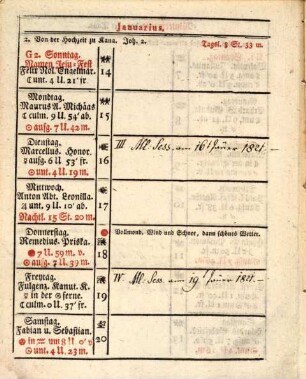 Januarius.
2. Von der Hochzeit zu Kana. Joh. 2. Tagsl. 8 St. 33 m.
G 2. Sonntag.
Namen Jesu-Fest
Felix Nol. Engelmar. 14
☾ unt. 4 U. 21' fr.
Montag.
Maurus A. Michäas 15
☾ culm. 9 U. 54' ab.
☉ aufg. 7 U. 42 m.
Dienstag.
Marcellus. Honor. 16 III Sess. am 16 1821. –
aufg. 6 U. 53' fr.
☉ unt. 4 U. 19 m.
Mittwoch.
Anton Abt. Leonilla 17
unt. 9 U. 10' ab.
Nachtl. 15 St. 20 m.
Donnerstag. Vollmond. Wind und Schnee, dann schönes Wetter.
Remedius. Priska. 18
7 U. 59 m. v.
☉ aufg. 7 U. 39 m.
Freytag. IV. Sess. am 19 1821. –
Fulgenz. Kanut. K. 19
in der Sferne.
☾ culm. 0 U. 37' fr.
Samstag.
Fabian u. Sebastian. 20
☉ in ♒ um 8 U. 0' v
☉ unt. 4 U. 23 m.